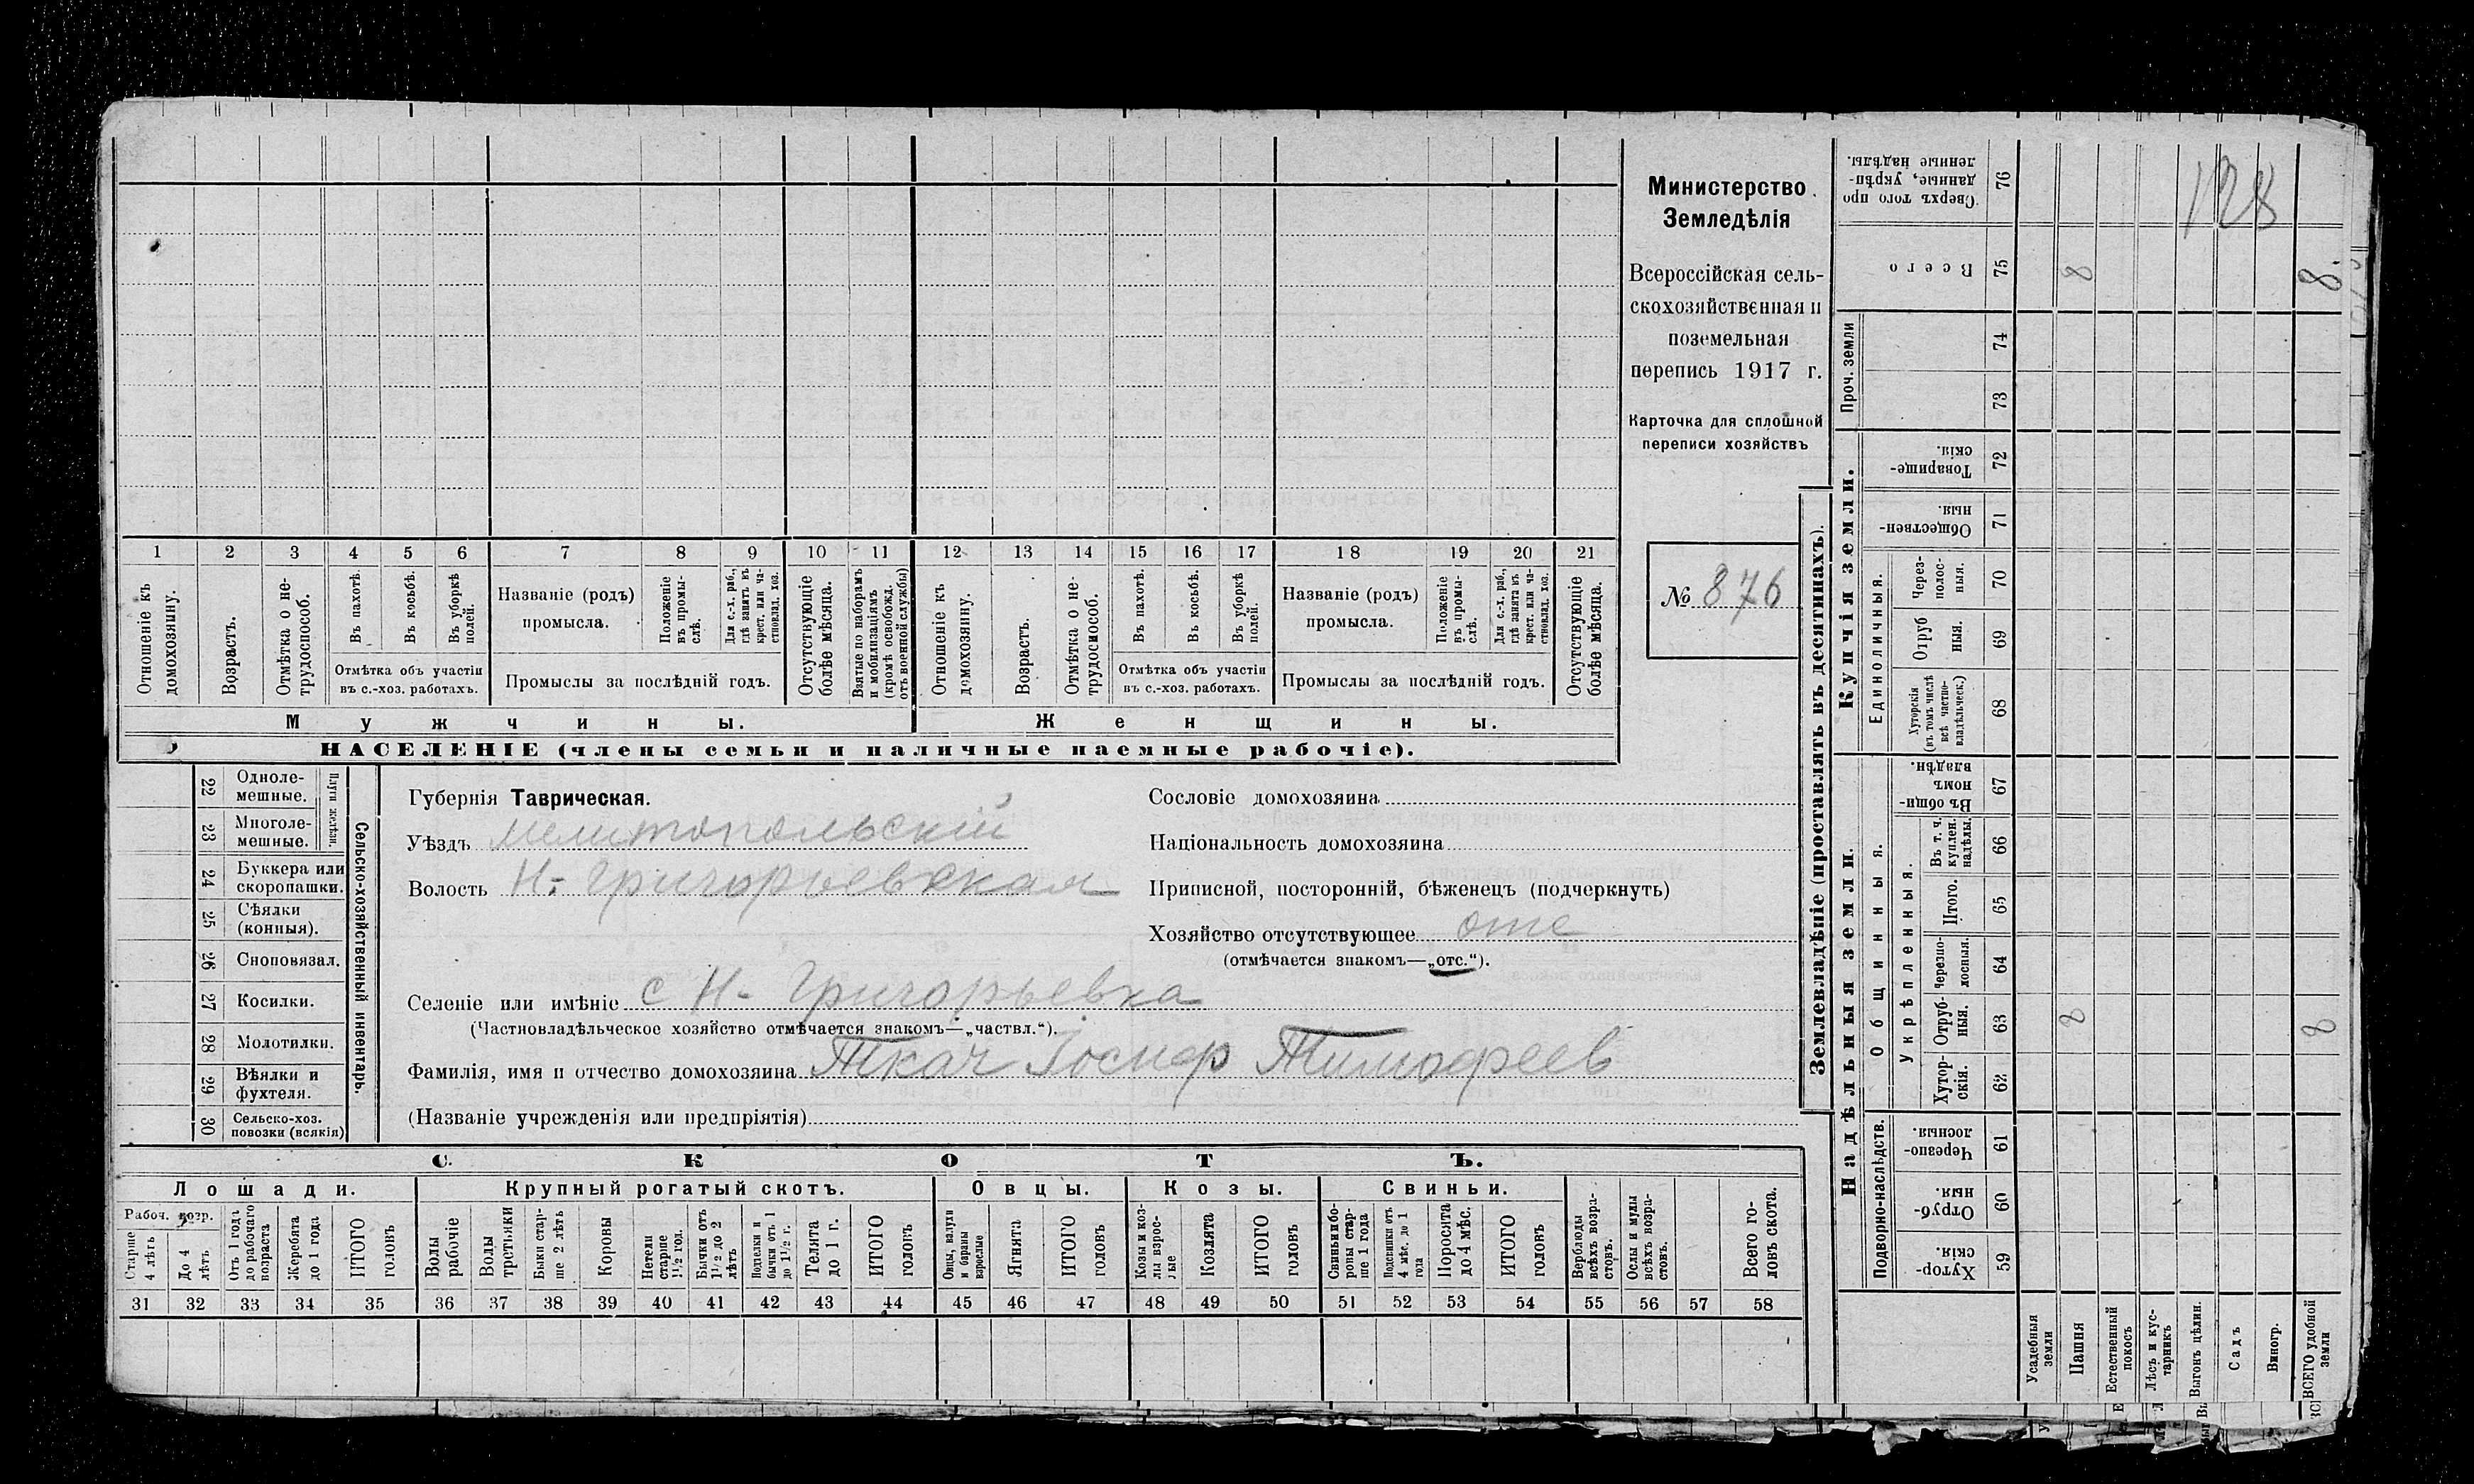 Министерство
Земледѣлія
Всероссійская сель-
скохозяйственная и
поземельная
перепись 1917 г.
Карточка для сплошной
переписи хозяйствъ
№ 876
1 2 3 4 5 6 7 8 9 10 11 12 13 14 15 16 17 18 19 20 21
Отношеніе къ
домохозяину.
Возрастъ.
Отмѣтка о не-
трудоспособ.
Въ пахотѣ.
Въ косьбѣ.
Въ уборкѣ
полей.
Отмѣтка объ участіи
въ с.-хоз. работахъ.
Названіе (родъ)
промысла.
Положеніе
въ промы-
слѣ.
Для с.-х. раб.,
гдѣ занятъ въ
крест. или ча-
стновлад. хоз.
Промыслы за послѣдній годъ.
Отсутствующіе
болѣе мѣсяца.
Взятые по наборамъ
и мобилизаціямъ
(кромѣ освобожд.
отъ военной службы)
Отношеніе къ
домохозяину.
Возрастъ.
Отмѣтка о не-
трудоспособ.
Въ пахотѣ.
Въ косьбѣ.
Въ уборкѣ
полей.
Отмѣтка объ участіи
въ с.-хоз. работахъ.
Названіе (родъ)
промысла.
Положеніе
въ промы-
слѣ.
Для с.-х. раб.,
гдѣ занята въ
крест. или ча-
стновлад. хоз.
Промыслы за послѣдній годъ.
Отсутствующіе
болѣе мѣсяца.
Мужчины.
Женщины.
НАСЕЛЕНІЕ (члены семьи и наличные наемные рабочіе).
22 Одноле-
мешные.
23 Многоле-
мешные.
Плуги желѣзн.
24 Буккера или
скоропашки.
25 Сѣялки
(конныя).
26 Сноповязал.
27 Косилки.
28 Молотилки.
29 Вѣялки и
фухтеля.
30 Сельско-хоз.
повозки (всякія)
Сельско-хозяйственный инвентарь.
Губернія Таврическая.
Уѣздъ Мелитопольскій
Волость Н-Григорьевская
Сословіе домохозяина
Національность домохозяина
Приписной, посторонній, бѣженецъ (подчеркнуть)
Хозяйство отсутствующее отс
(отмѣчается знакомъ—„отс.“).
Селеніе или имѣніе с Н-Григорьевка
(Частновладѣльческое хозяйство отмѣчается знакомъ—„частвл.“).
Фамилія, имя и отчество домохозяина Ткач Іосиф Тимофеев
(Названіе учрежденія или предпріятія)
СКОТЪ.
Лошади.
Крупный рогатый скотъ.
Овцы.
Козы.
Свиньи.
Рабоч. возр.
Старше
4 лѣтъ
До 4
лѣтъ
Отъ 1 года
до рабочаго
возраста
Жеребята
до 1 года
ИТОГО
головъ
Волы
рабочіе
Волы
третьяки
Быки стар-
ше 2 лѣтъ
Коровы
Нетели
старше
1½ год.
Бычки отъ
1½ до 2
лѣтъ
Подтелки и
бычки отъ 1
до 1½ г.
Телята
до 1 г.
ИТОГО
головъ
Овцы, валухи
и бараны
взрослые
Ягнята
ИТОГО
головъ
Козы и коз-
лы взрос-
лые
Козлята
ИТОГО
головъ
Свиньи и бо-
ровы стар-
ше 1 года
Подсвинки отъ
4 мѣс. до 1
года
Поросята
до 4 мѣс.
ИТОГО
головъ
Верблюды
всѣхъ возра-
стовъ.
Ослы и мулы
всѣхъ возра-
стовъ.
Всего го-
ловъ скота.
31 32 33 34 35 36 37 38 39 40 41 42 43 44 45 46 47 48 49 50 51 52 53 54 55 56 57 58
Землевладѣніе (проставлять въ десятинахъ).
Купчія земли.
Надѣльныя земли.
Сверхъ того про-
данные, укрѣп-
ленные надѣлы.
76
128
Всего
75
8
8.
Проч. земли
74
73
Товарище-
скія.
72
Обществен-
ныя.
71
Единоличныя.
Через-
полос-
ныя.
70
Отруб
ныя.
69
Хуторскія
(въ томъ числѣ
всѣ частно-
владѣльческ.)
68
Общинныя.
Въ общи-
номъ
владѣн.
67
Укрѣпленныя.
Въ т. ч.
куплен.
надѣлы.
66
Итого.
65
Черезпо-
лосныя.
64
Отруб-
ныя.
63
8
8
Хутор-
скія.
62
Подворно-наслѣдств.
Черезпо-
лосныя.
61
Отруб-
ныя.
60
Хутор-
скія.
59
Усадебныя
земли
Пашня
Естественный
покосъ
Лѣсъ и кус-
тарникъ
Выгонъ цѣлин.
Садъ
Виногр.
ВСЕГО удобной
земли